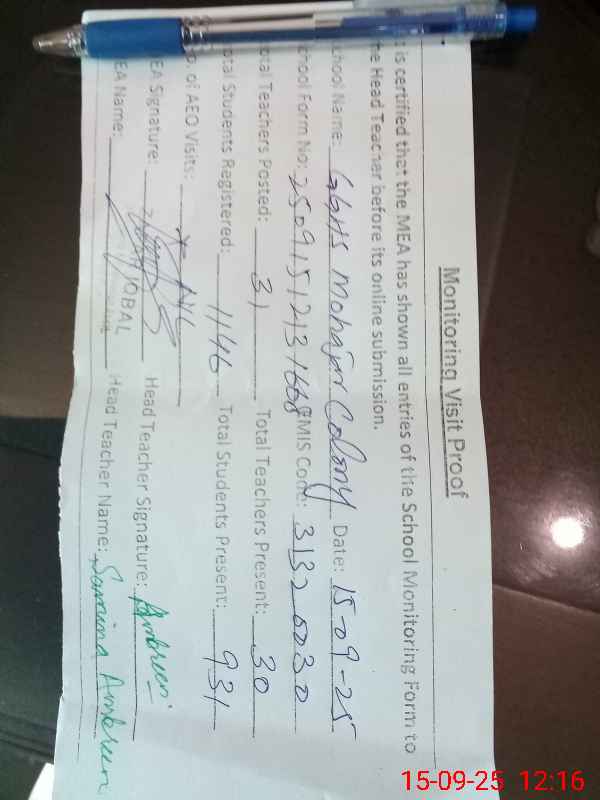 Monitoring Visit Proof
t is certified that the MEA has shown all entries of the School Monitoring Form to
he Head Teacher before its online submission.
chool Name: GGHS Mohajir Colony Date: 15-09-25
chool Form No: 25091512131668 EMIS Code: 31320030
otal Teachers Posted: 31 Total Teachers Present: 30
otal Students Registered: 1146 Total Students Present: 931
o. of AEO Visits: Nil
EA Signature: Head Teacher Signature: Ambreen
EA Name: IQBAL Head Teacher Name: Samina Ambreen
15-09-25 12:16